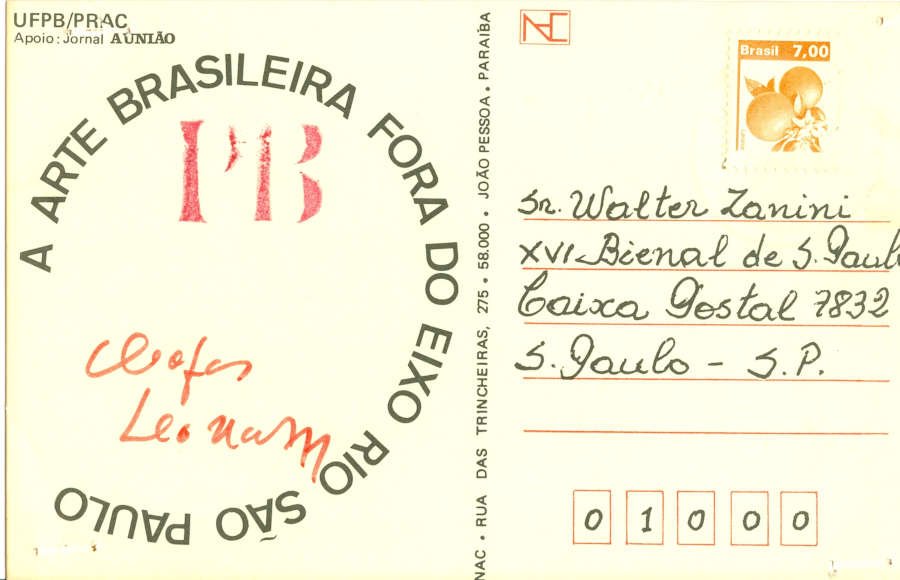 UFPB/PRAC
Apoio: Jornal A UNIÃO
A ARTE BRASILEIRA FORA DO EIXO RIO SÃO PAULO
PB
NAC • RUA DAS TRINCHEIRAS, 275 • 58.000 • JOÃO PESSOA • PARAÍBA
NAC
Brasil 7,00
Sr. Walter Zanini
XVI Bienal de S. Paulo
Caixa Postal 7832
S. Paulo - S.P.
0 1 0 0 0